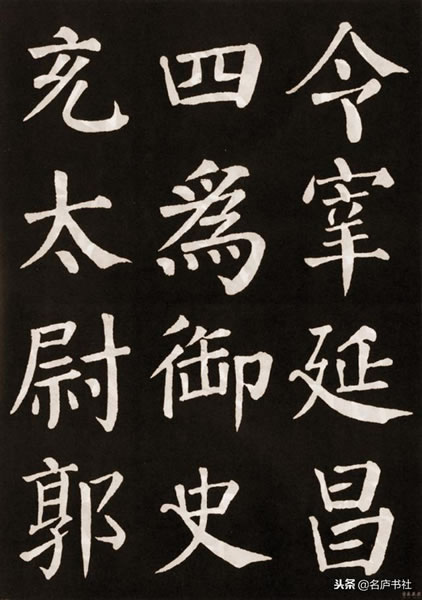 今宰延昌
四爲御史
充太尉郭
头条 @名庐书社